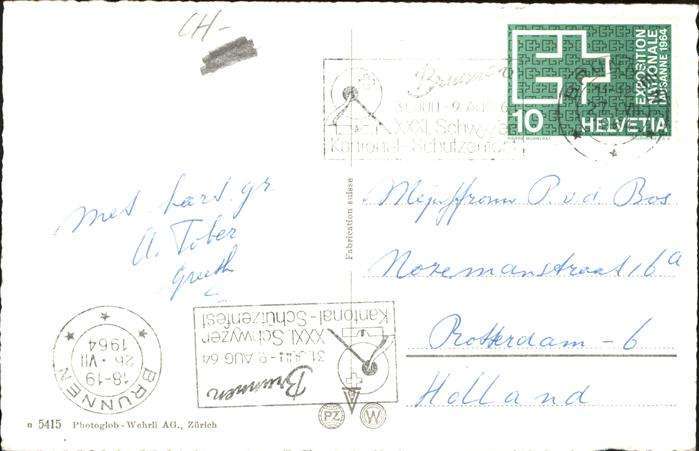 CH-
Brunnen
31. JULI - 9. AUG 64
XXXI. Schwyzer
Kantonal-Schützenfest
10
HELVETIA
EXPOSITION
NATIONALE
LAUSANNE 1964
Met hart. gr
A. Tober
Fabrication suisse
Mejuffrouw P. v d Bos
Noremanstraat 16a
Rotterdam - 6
Holland
BRUNNEN
18-19
26·VII
1964
Brunnen
31 JULI - 9 AUG 64
XXXI Schwyzer
Kantonal-Schützenfest
PZ
W
n 5415 Photoglob-Wehrli AG., Zürich